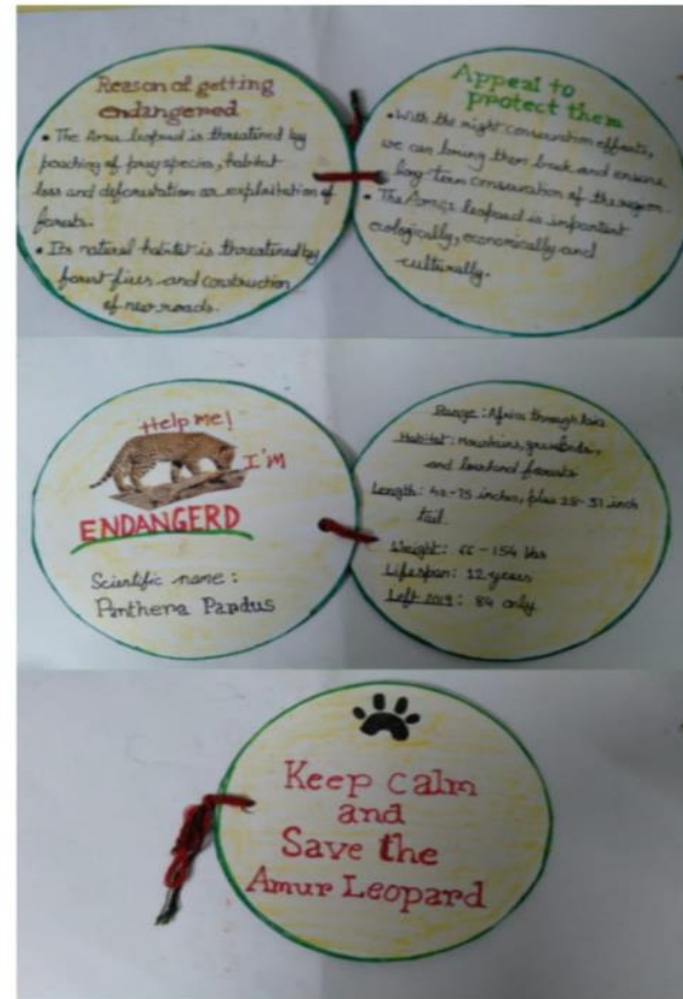 Reason of getting
endangered
• The Amur leopard is threatined by
poaching of prey species, habitat
loss and deforestation or exploitation of
forests.
• Its natural habitat is threatined by
forest fires and construction
of new roads.
Appeal to
protect them
• With the right conservation efforts,
we can bring them back and ensure
long-term conservation of the region.
• The Amur leopard is important
ecologically, economically and
culturally.
Help me!
I'M
ENDANGERD
Scientific name:
Panthera Pardus
Range: Africa through
Habitat: Mountains, grasslands,
and forests
Length: 42-75 inches, plus 28-31 inch
tail
Weight: 66-154 lbs
Lifespan: 12 years
Left 2019: 84 only
Keep calm
and
Save the
Amur Leopard